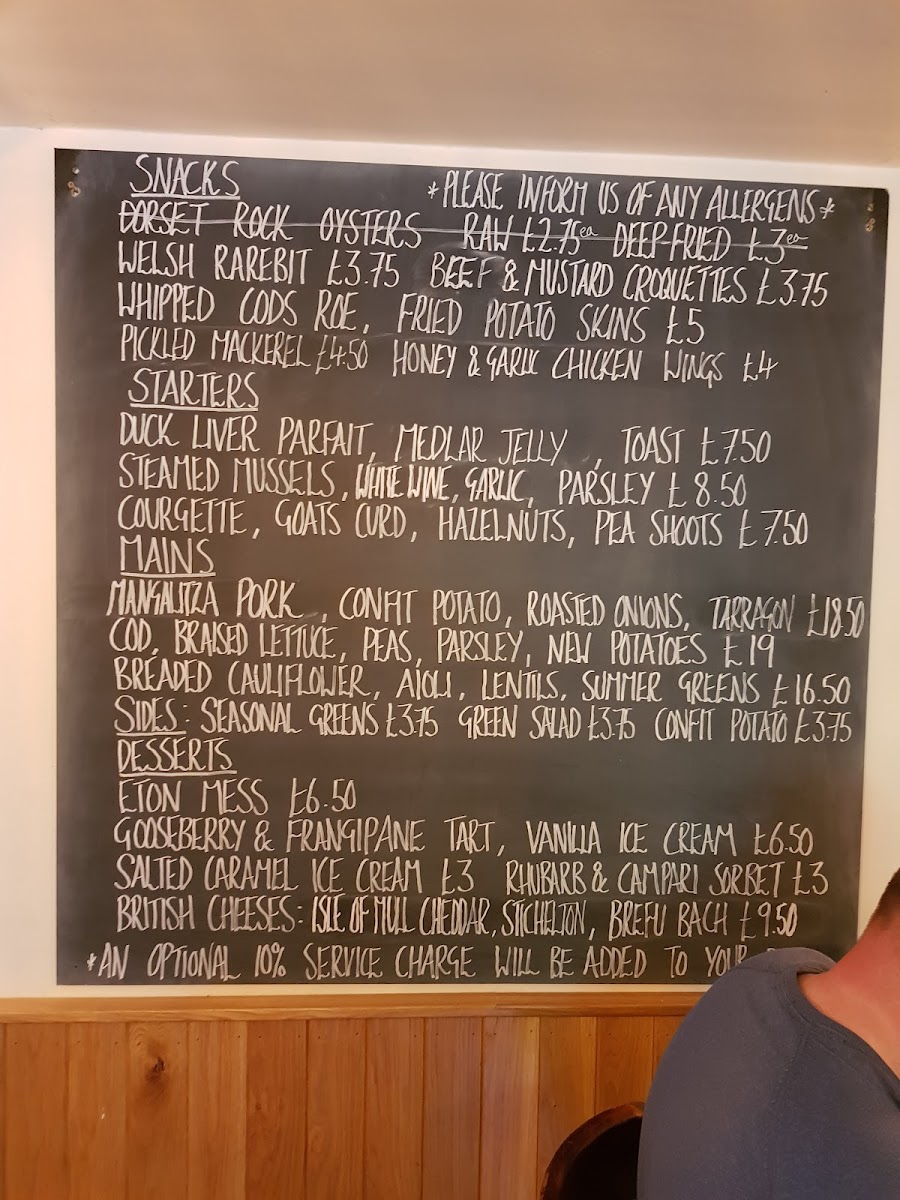 SNACKS
*PLEASE INFORM US OF ANY ALLERGENS*
DORSET ROCK OYSTERS RAW £2.75ea DEEP FRIED £3ea
WELSH RAREBIT £3.75 BEEF & MUSTARD CROQUETTES £3.75
WHIPPED CODS ROE, FRIED POTATO SKINS £5
PICKLED MACKEREL £4.50 HONEY & GARLIC CHICKEN WINGS £4
STARTERS
DUCK LIVER PARFAIT, MEDLAR JELLY, TOAST £7.50
STEAMED MUSSELS, WHITE WINE, GARLIC, PARSLEY £8.50
COURGETTE, GOATS CURD, HAZELNUTS, PEA SHOOTS £7.50
MAINS
MANGALITZA PORK, CONFIT POTATO, ROASTED ONIONS, TARRAGON £18.50
COD, BRAISED LETTUCE, PEAS, PARSLEY, NEW POTATOES £19
BREADED CAULIFLOWER, AIOLI, LENTILS, SUMMER GREENS £16.50
SIDES: SEASONAL GREENS £3.75 GREEN SALAD £3.75 CONFIT POTATO £3.75
DESSERTS
ETON MESS £6.50
GOOSEBERRY & FRANGIPANE TART, VANILLA ICE CREAM £6.50
SALTED CARAMEL ICE CREAM £3 RHUBARB & CAMPARI SORBET £3
BRITISH CHEESES: ISLE OF MULL CHEDDAR, STICHELTON, BREFU BACH £9.50
*AN OPTIONAL 10% SERVICE CHARGE WILL BE ADDED TO YOUR